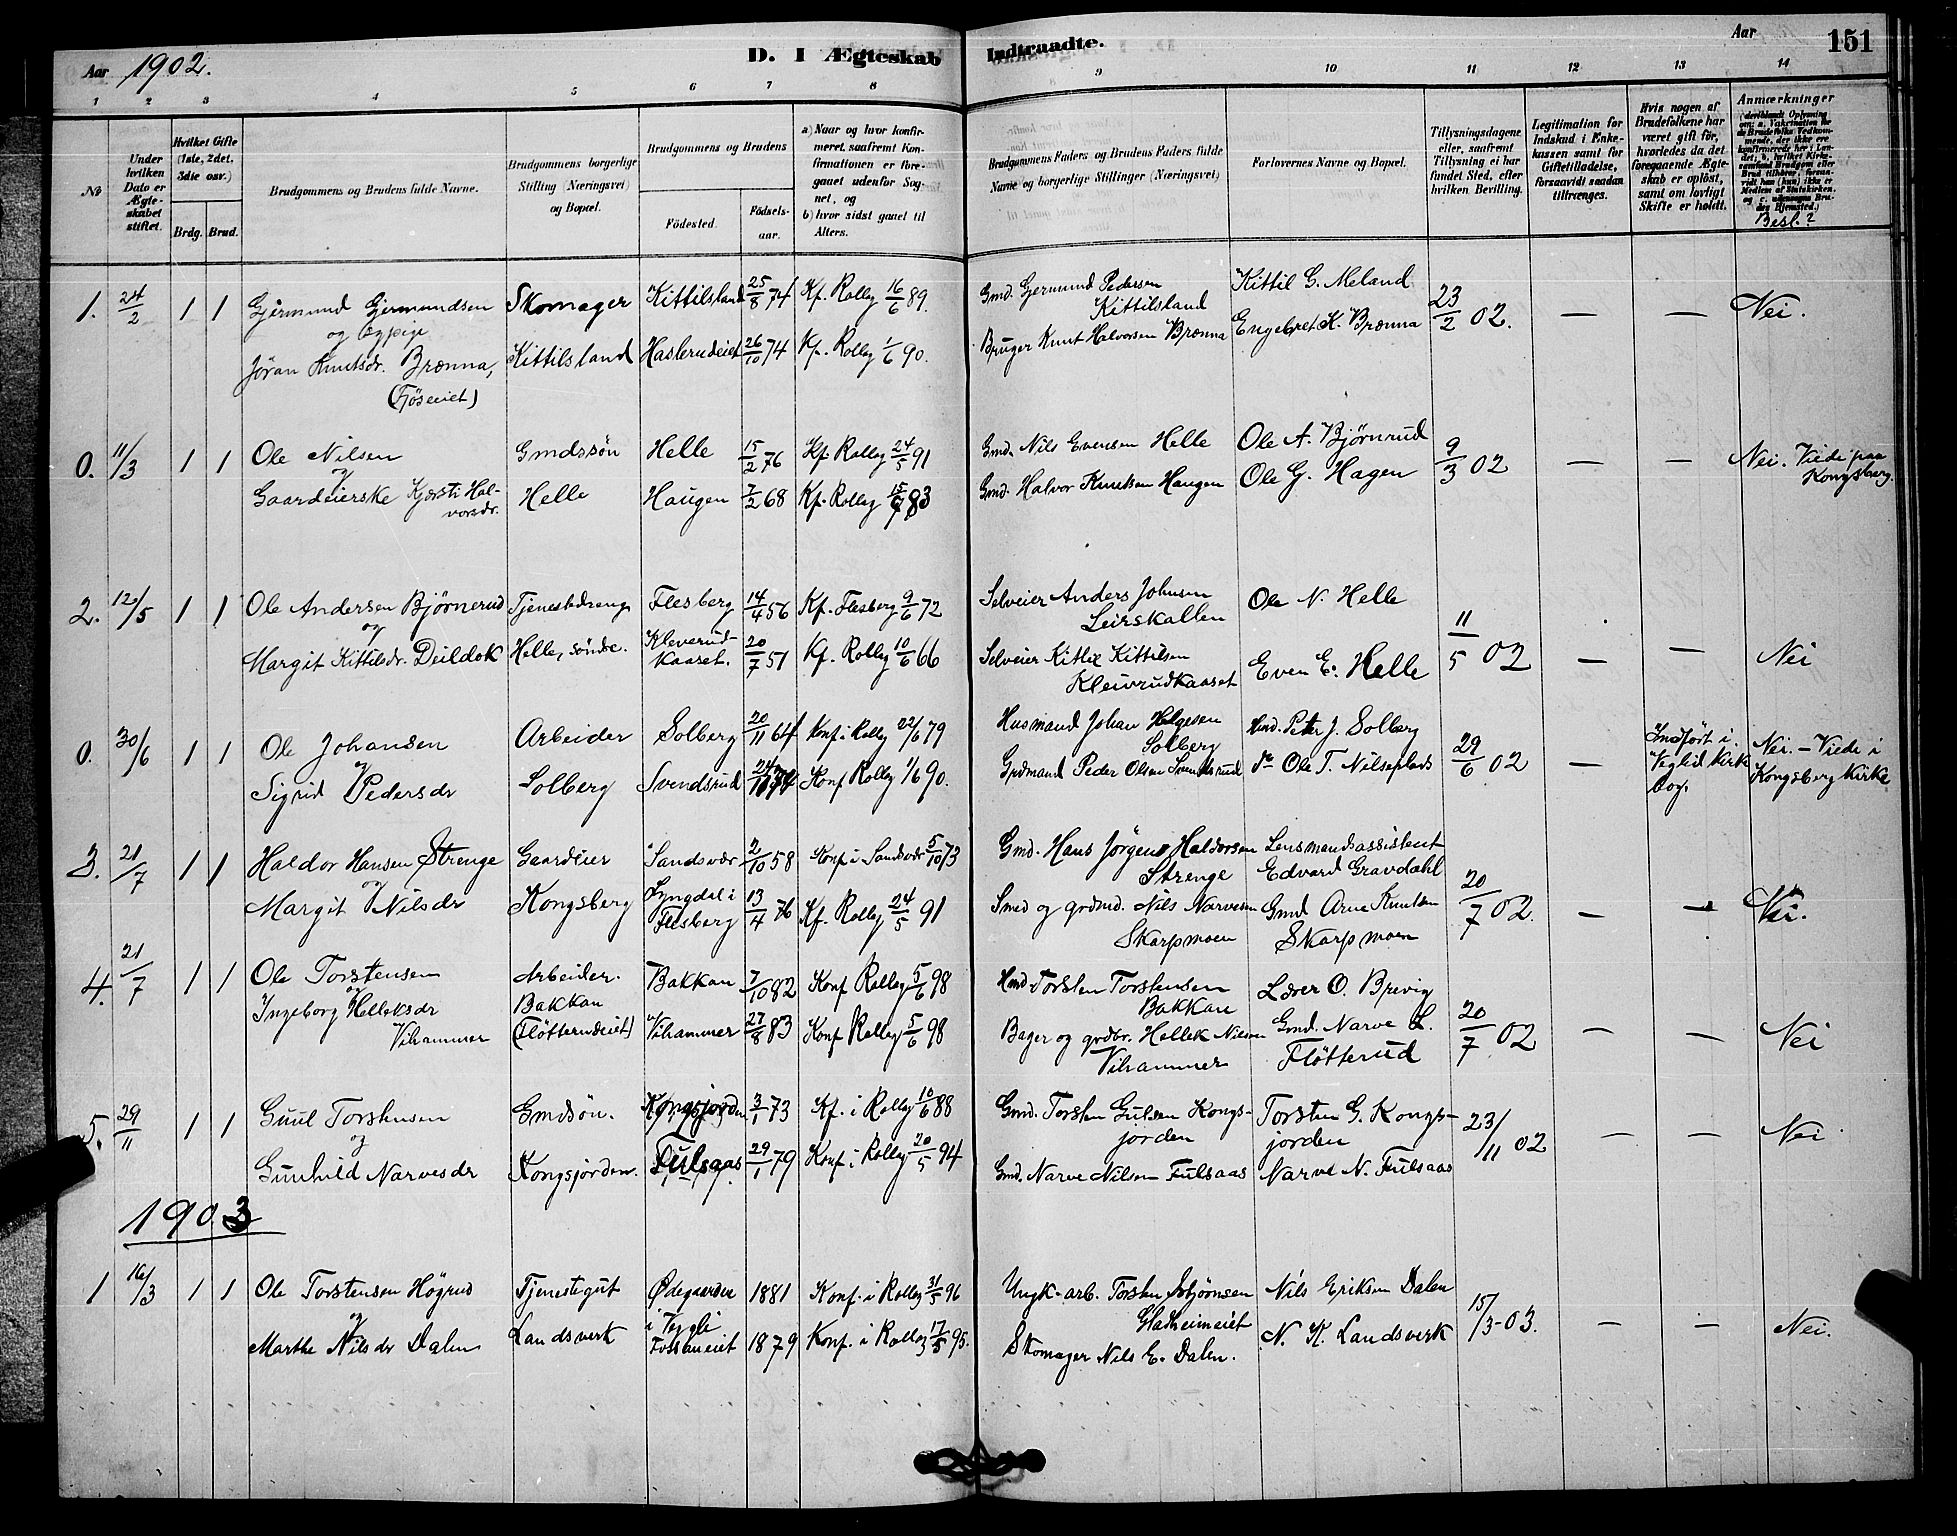 Aar 1902.
D. I Ægteskab Indtraadte.
Aar 151
1 2 3 4 5 6 7 8 9 10 11 12 13 14
No
Under hvilken Dato er Ægteskabet stiftet.
Hvilket Gifte (1ste, 2det, 3die osv.)
Brdg. Brud.
Brudgommens og Brudens fulde Navne.
Brudgommens borgerlige Stilling (Næringsvei) og Bopæl.
Brudgommens og Brudens
Födested. Födselsaar.
a) Naar og hvor konfirmeret, saafremt Konfirmationen er foregaaet udenfor Sognet, og
b) hvor sidst gaaet til Alters.
Brudgommens Faders og Brudens Faders fulde Navne og borgerlige Stillinger (Næringsvei)
Forlovernes Navne og Bopæl.
Tillysningsdagene, eller, saafremt Tillysning ei har fundet Sted, efter hvilken Bevilling.
Legitimation for Indskud i Enkekassen samt for Giftetilladelse, forsaavidt saadan tiltrænges.
Hvis nogen af Brudefolkene har været gift för, hvorledes da det foregaaende Ægteskab er oplöst, samt om lovligt Skifte er holdt.
Anmærkninger
Besl.?
1. 24/2 1 1 Gjermund Gjermundsen Skomager Kittilsland 25/8 74 Kf. Rolleg 16/6 89. Gmd. Germund Pedersen Kittilsland Kittil G. Meland 23/2 02. — — Nei.
og
Jöran Knutsdr. Brænna, (Fjöseiet) Kittilsland Haslerudeiet 26/10 74 Kf. Rolleg 1/6 90. Bruger Knut Halvorsen Brænna Engebret K. Brænna
0. 11/3 1 1 Ole Nilsen Gmdssön Helle 15/2 76 Kf. Rolleg 24/5 91 Gmd. Nils Evensen Helle Ole A. Bjørnrud 9/3 02 — — Nei. Viede paa Kongsberg.
og
Gaardeierske Kjersti Halvorsdr. Helle Haugen 7/2 68 Kf. Rolleg 15/7 83 Gmd. Halvor Knutsen Haugen Ole G. Hagen
2. 12/5 1 1 Ole Andersen Bjørnerud Tjenestedreng Flesberg 14/4 56 Kf. Flesberg 9/6 72 Selveier Anders Johnsen Leirskallen Ole N. Helle 11/5 02 — — Nei
og
Margit Kittilsdr. Deildok Helle, söndre. Kleverudkaaset. 20/7 51 Kf. Rolleg 10/6 66 Selveier Kittil Kittilsen Kleivrudkaaset Even E. Helle
0. 30/6 1 1 Ole Johansen Arbeider Solberg 20/11 64 Konf. i Rolleg 22/6 79 Husmand Johan Helgesen Solberg Hmd. Peter J. Solberg 29/6 02 — Indfört i Veglid Kirkebog. Nei. - Viede i Kongsberg Kirke
og
Sigrid Pedersdr Solberg Svendsrud Konf Rolleg 1/6 90. Grdmand Peder Olsen Svendsrud do Ole T. Nilseplads
3. 21/7 1 1 Haldor Hansen Strenge Gaardeier Sandsvær 2/10 58 Konf i Sandsvær 5/10 73 Gmd. Hans Jörgen Haldorsen Strenge Lensmandsassistent Edvard Gravdahl 20/7 02. — — Nei.
og
Margit Nilsdr Kongsberg Lyngdal i Flesberg 13/4 76 Kf. Rolleg 24/5 91 Smed og grdmd. Nils Narvesen Skarpmoen Gmd Arne Knutsen Skarpmoen
4. 21/7 1 1 Ole Torstensen Arbeider. Bakkan 7/10 82 Konf Rolleg 5/6 98 Hmd Torsten Torstensen Bakkan Lærer O. Brevig 20/7 02 — — Nei
og
Ingeborg Helleksdr Vihammer Bakkan (Flötterudeiet) Vihammer 27/8 83 Konf Rolleg 5/6 98 Bager og grdbr. Hellek Nilsen Vihammer Gmd. Narve L. Flötterud
5. 29/11 1 1 Guul Torstensen Gmdsön. Kongsjorden 3/1 73 Kf. i Rolleg 10/6 88 Gmd. Torsten Gulsen Kongsjorden Torsten G. Kongsjorden 23/11 02 — — Nei
og
Gunhild Narvesdr Kongsjorden. Fulsaas 29/1 79 Konf. i Rolleg 20/5 94 Gmd. Narve Nilsen Fulsaas Narve N. Fulsaas
1903
1 16/3 1 1 Ole Torstensen Högrud Tjenestegut Ødegaarden i 1881 Konf. i Rolleg 31/5 96 Ungk-arb. Torsten Gladheimeiet Nils Eriksen Dalen 15/3-03. — — Nei.
og
Marthe Nilsdr Dalen Landsverk Fossaneiet 1879 Konf. i Rolleg 95. Skomager Nils E. Dalen. N. K. Landsverk